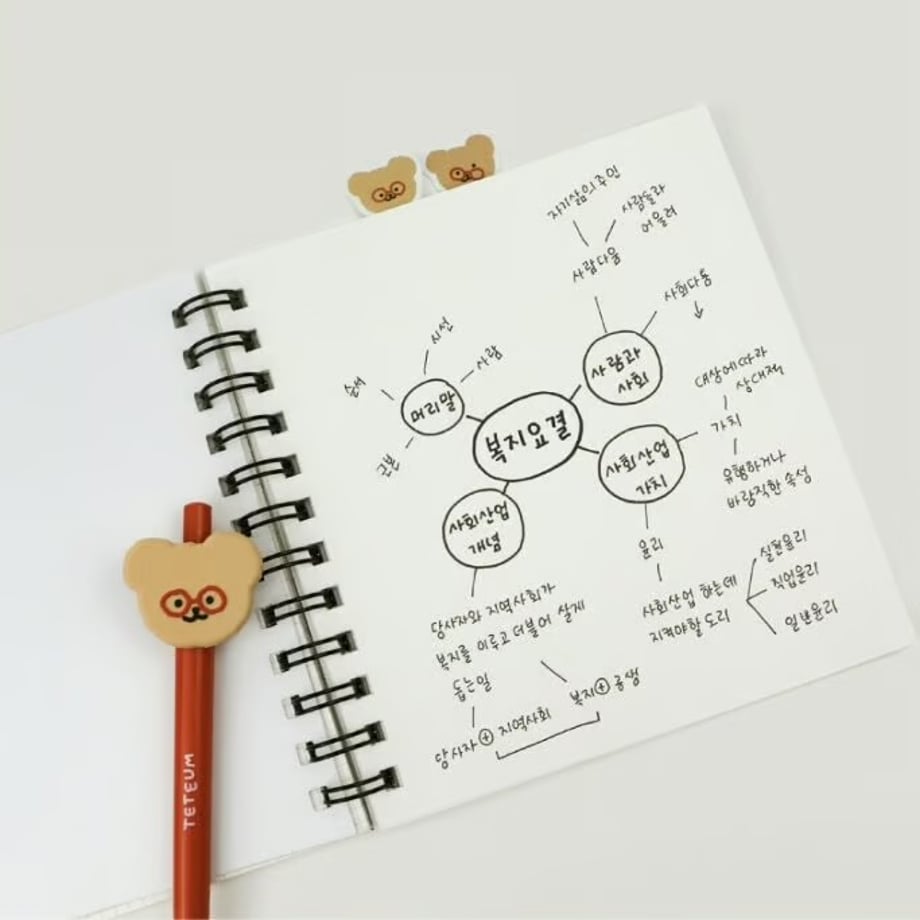 자기삶의주인
사람들과
어울려
사람다움
사회다움
사람과
사회
시선
사람
순서
머리말
근본
복지요결
대상에따라
상대적
가치
유행하거나
바람직한 속성
사회산업
가치
사회산업
개념
윤리
사회산업 하는데
지켜야할 도리
실천윤리
직업윤리
일반윤리
당사자와 지역사회가
복지를 이루고 더불어 살게
돕는일
복지+공생
당사자+지역사회
TETEUM